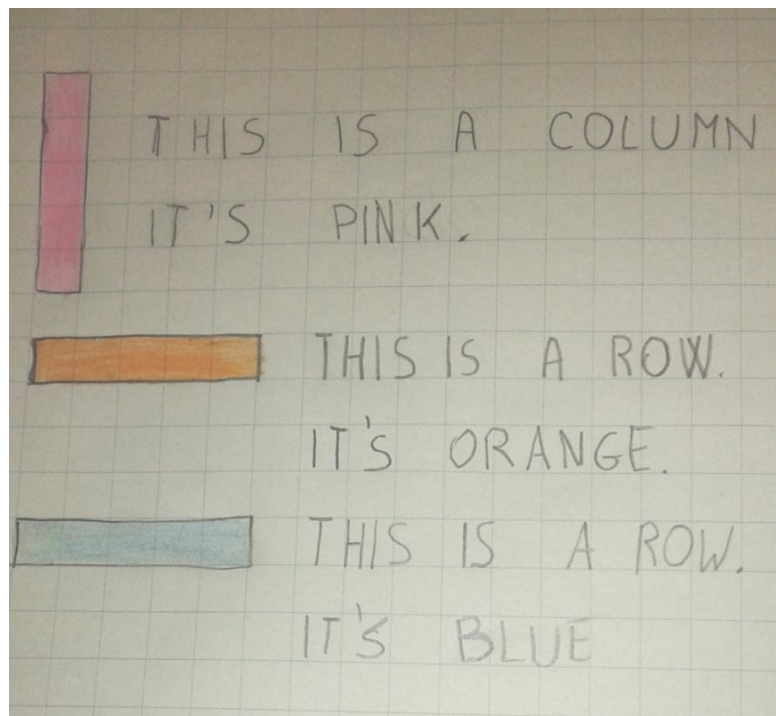 THIS IS A COLUMN
IT'S PINK.
THIS IS A ROW.
IT'S ORANGE.
THIS IS A ROW.
IT'S BLUE